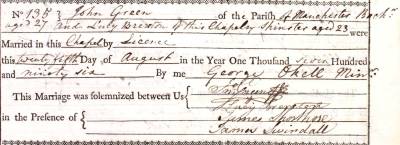 No 135 } John Green of the Parish of Manchester Bachr.
aged 27 and Lucy Brereton of this Chapelry Spinster aged 23 were
Married in this Chapel by Licence
this twenty fifth Day of August in the Year One Thousand Seven Hundred
and ninety six By me George Okell Minr.
This Marriage was solemnized between Us {
Lucy Brereton
in the Presence of { James
James Swindall